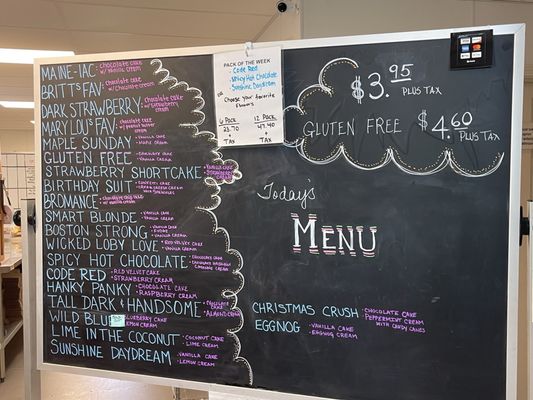 MAINE-IAC - CHOCOLATE CAKE
W/ VANILLA CREAM
BRITT'S FAV - CHOCOLATE CAKE
W/ CHOCOLATE CREAM
DARK STRAWBERRY - CHOCOLATE CAKE
- STRAWBERRY CREAM
MARY LOU'S FAV - CHOCOLATE CAKE
CREAM
MAPLE SUNDAY - VANILLA CAKE
- MAPLE CREAM
GLUTEN FREE
- VANILLA CREAM
STRAWBERRY SHORTCAKE - VANILLA CAKE
- STRAWBERRY CREAM
BIRTHDAY SUIT - CONFETTI CAKE
BRDVANCE - CHOCOLATE CHIP CAKE
SMART BLONDE - VANILLA CAKE
- VANILLA CREAM
BOSTON STRONG - VANILLA CAKE
- FUDGE
- VANILLA CREAM
WICKED LOBVY LOVE - RED VELVET CAKE
- VANILLA CREAM
SPICY HOT CHOCOLATE - CHOCOLATE CAKE
CHOCOLATE CREAM
CODE RED - RED VELVET CAKE
- STRAWBERRY CREAM
HANKY PANKY - CHOCOLATE CAKE
- RASPBERRY CREAM
TALL DARK & HANDSOME - CHOCOLATE CAKE
- ALMOND CREAM
WILD BLUE BLUEBERRY CAKE
LEMON CREAM
LIME IN THE COCONUT - COCONUT CAKE
- LIME CREAM
SUNSHINE DAYDREAM - VANILLA CAKE
- LEMON CREAM
PACK OF THE WEEK
- CODE RED
- SPICY HOT CHOCOLATE
- SUNSHINE DAYDREAM
OR
CHOOSE YOUR FAVORITE
FLAVORS
6 PACK 12 PACK
23.70 47.40
+ TAX + TAX
$3.95
PLUS TAX
GLUTEN FREE $4.60
PLUS TAX
Today's
MENU
CHRISTMAS CRUSH - CHOCOLATE CAKE
PEPPERMINT CREAM
WITH CANDY CANES
EGGNOG - VANILLA CAKE
- EGGNOG CREAM